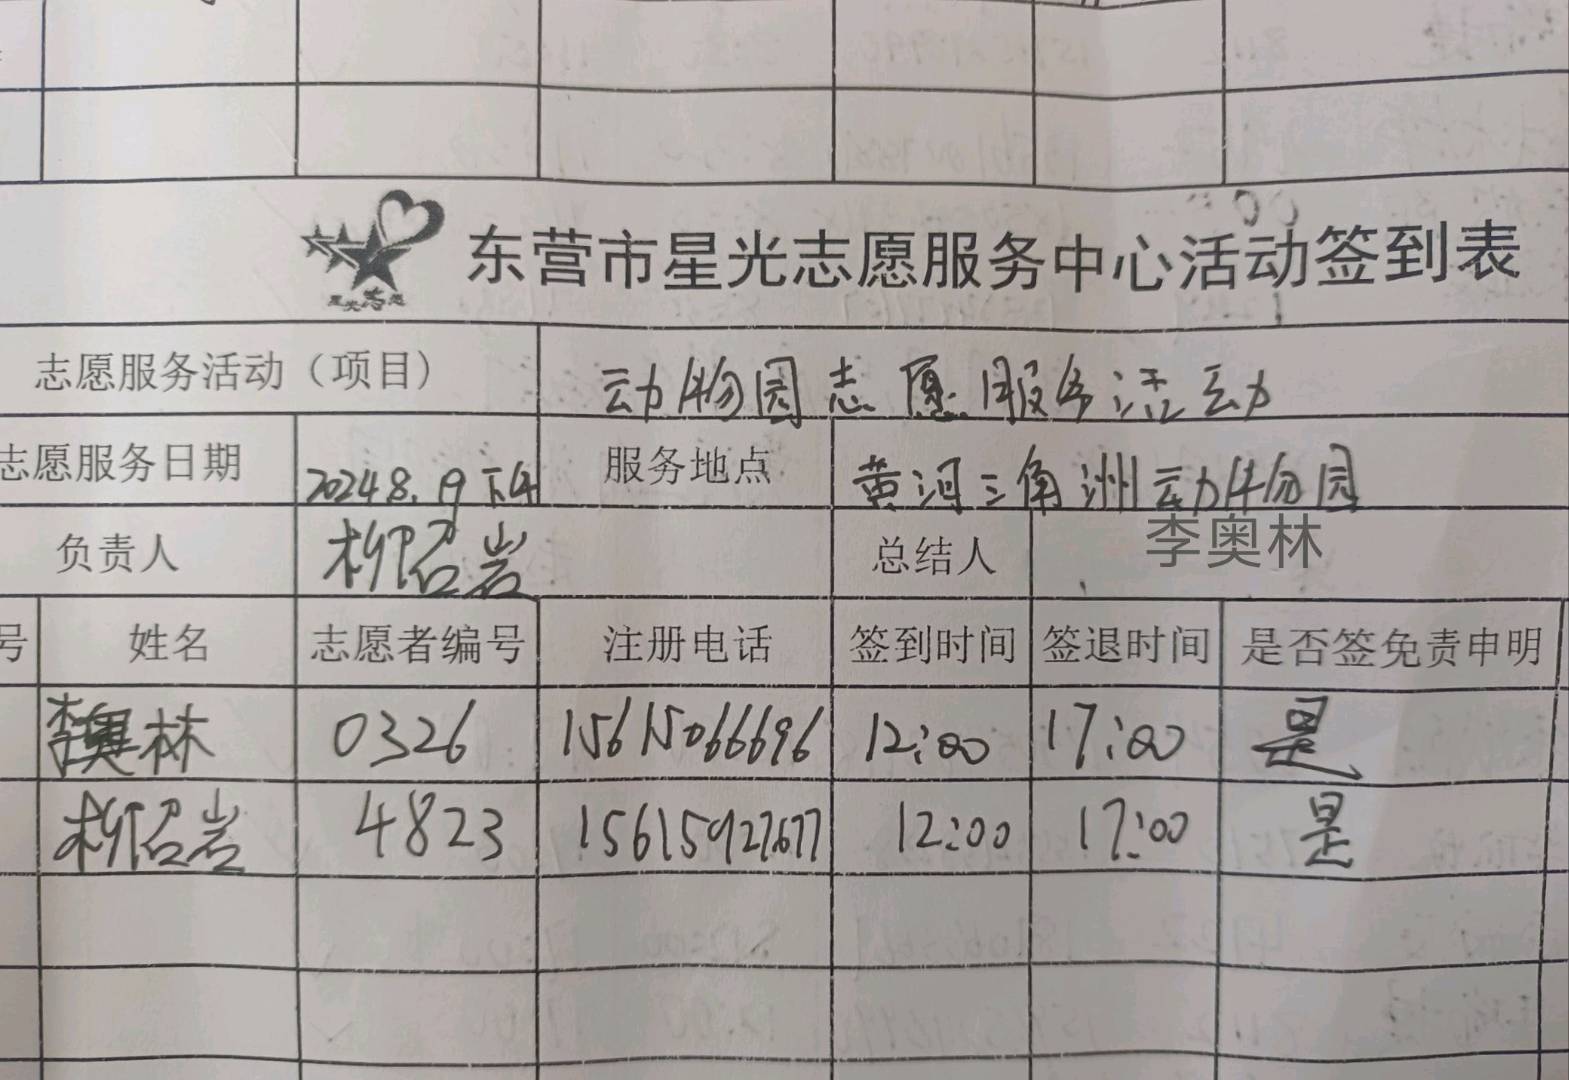 东营市星光志愿服务中心活动签到表
志愿服务活动（项目） 动物园志愿服务活动
志愿服务日期 2024 8.19下午 服务地点 黄河三角洲动物园
负责人 柳召岩 总结人 李奥林
号 姓名 志愿者编号 注册电话 签到时间 签退时间 是否签免责申明
李奥林 0326 15615066696 12:00 17:00 是
柳召岩 4823 15615927677 12:00 17:00 是